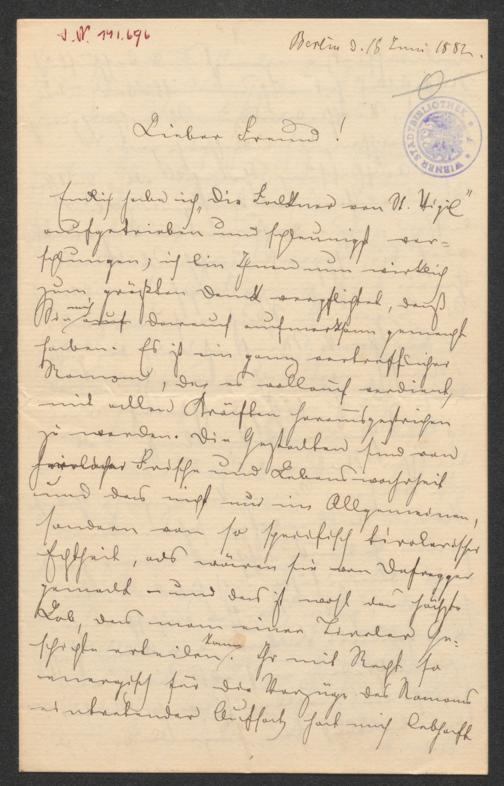 J. N. 141.696
Berlin d. 18 Juni 1882.
WIENER STADTBIBLIOTHEK
Lieber Freund!
Endlich habe ich „Die Falkner von St. Vigil"
aufgetrieben und schleunigst ver-
schlungen, ich bin Ihnen nun wirklich
zum größten Dank verpflichtet, daß
Sie mich darauf aufmerksam gemacht
haben. Es ist ein ganz vortrefflicher
Roman, der es vollauf verdient,
mit allen Kräften herausgestrichen
zu werden. Die Gestalten sind von
Frische und Lebenswahrheit
und das nicht nur im Allgemeinen,
sondern von so specifisch tirolerischer
Echtheit, als wären sie von Defregger
gemalt – und das ist wohl das höchste
Lob, das man einer Tiroler Ge-
schichte erteilen kann. Ihr mit Recht so
energisch für die Vorzüge des Romans
eintretender Aufsatz hat mich lebhaft